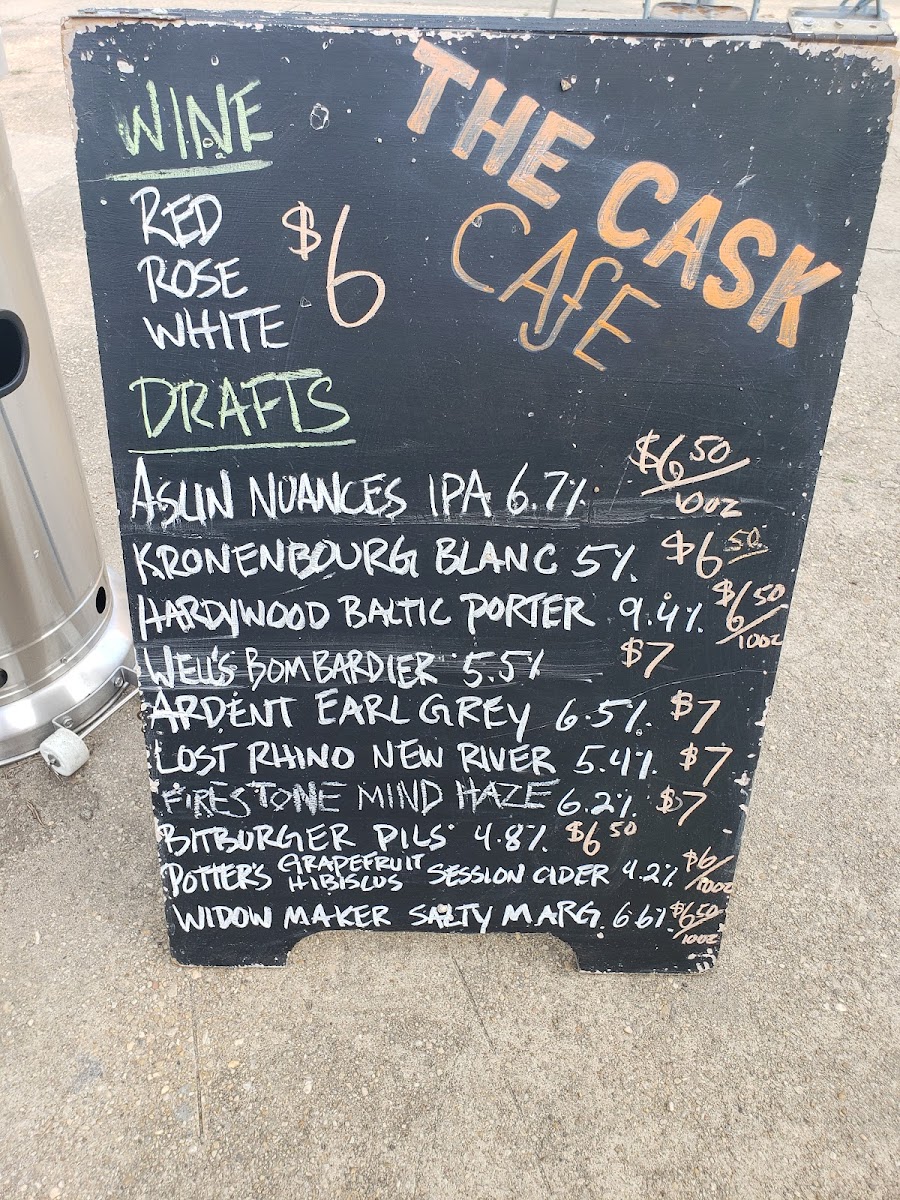 THE CASK
CAFE
WINE
RED
ROSE
WHITE
$6
DRAFTS
ASLIN NUANCES IPA 6.7% $6.50/10OZ
KRONENBOURG BLANC 5% $6.50
HARDYWOOD BALTIC PORTER 9.4% $6.50/10OZ
WELL'S BOMBARDIER 5.5% $7
ARDENT EARL GREY 6.5% $7
LOST RHINO NEW RIVER 5.4% $7
FIRESTONE MIND HAZE 6.2% $7
BITBURGER PILS 4.8% $6.50
POTTER'S GRAPEFRUIT HIBISCUS SESSION CIDER 4.2% $6/10OZ
WIDOW MAKER SALTY MARG 6.6% $6.50/10OZ